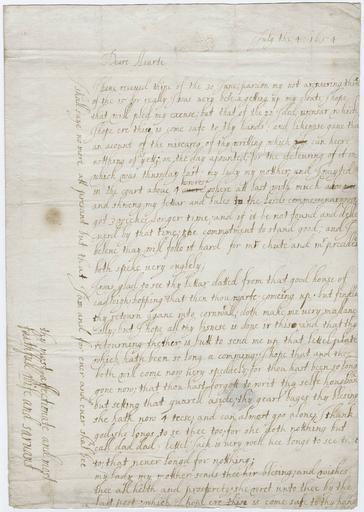 July the 4: 1654
Deare Hearte
I have receved thine of the 30 June: parson my not answering thine
of the 15 for realy I was very bese in geting up my
that will pled my excuse; but that of the 22 I did answar, which
I hope ere this is come safe to thy hands: and likewise gave the
an account of the of thy writing which I can heere
nothing of yet; on the day apointed for the delivering of it in
which was thursday last: my lady my mother, and I wayted
in the court above 4 howers: where att last with much
and shewing my letar and tales to the lords
got 3 weekes longer time, and if it be not found and
up by that time; the commitment to stand good, and I
beleve that will folle it hard for mr chute and mr
both spcke very ougbely:
I was glad to see thy letar datted from that good house of
hopping that then thou warte coming up, but finding
thy returne againe into cornwall, doth make me very mallan
colly; but I hope all thy bisnese is done in this and that thy
retourning thether is but to send me up that
which hath been so long a comming: I hope that and thee
both will come now very speddely for thou hast been so long
gone now; that thou hast forgott to writ thy selfe housband
but setting that qunrell aside; thy geart buges thy blessing
she hath now 4 teete; and can almost goe alone; I thank
god she longs to see thee too for she doth nothing but
call dad dad: lettell Jack is very well hee longs to see thee
to that never longd for nothing;
my lady my mother sends thee her blessing; and wishes
thee all helth and prosperity; she writ unto thee by the
last post which I hope ere there is come safe to thy hands
I shall saye no more att present but that I am and for ever and ever shall bee
thy most affectionate and most
faithful wife and sarvant